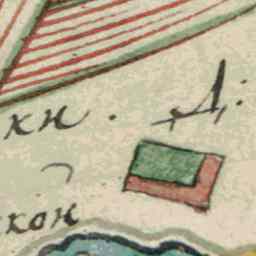 кн. Д:
кон